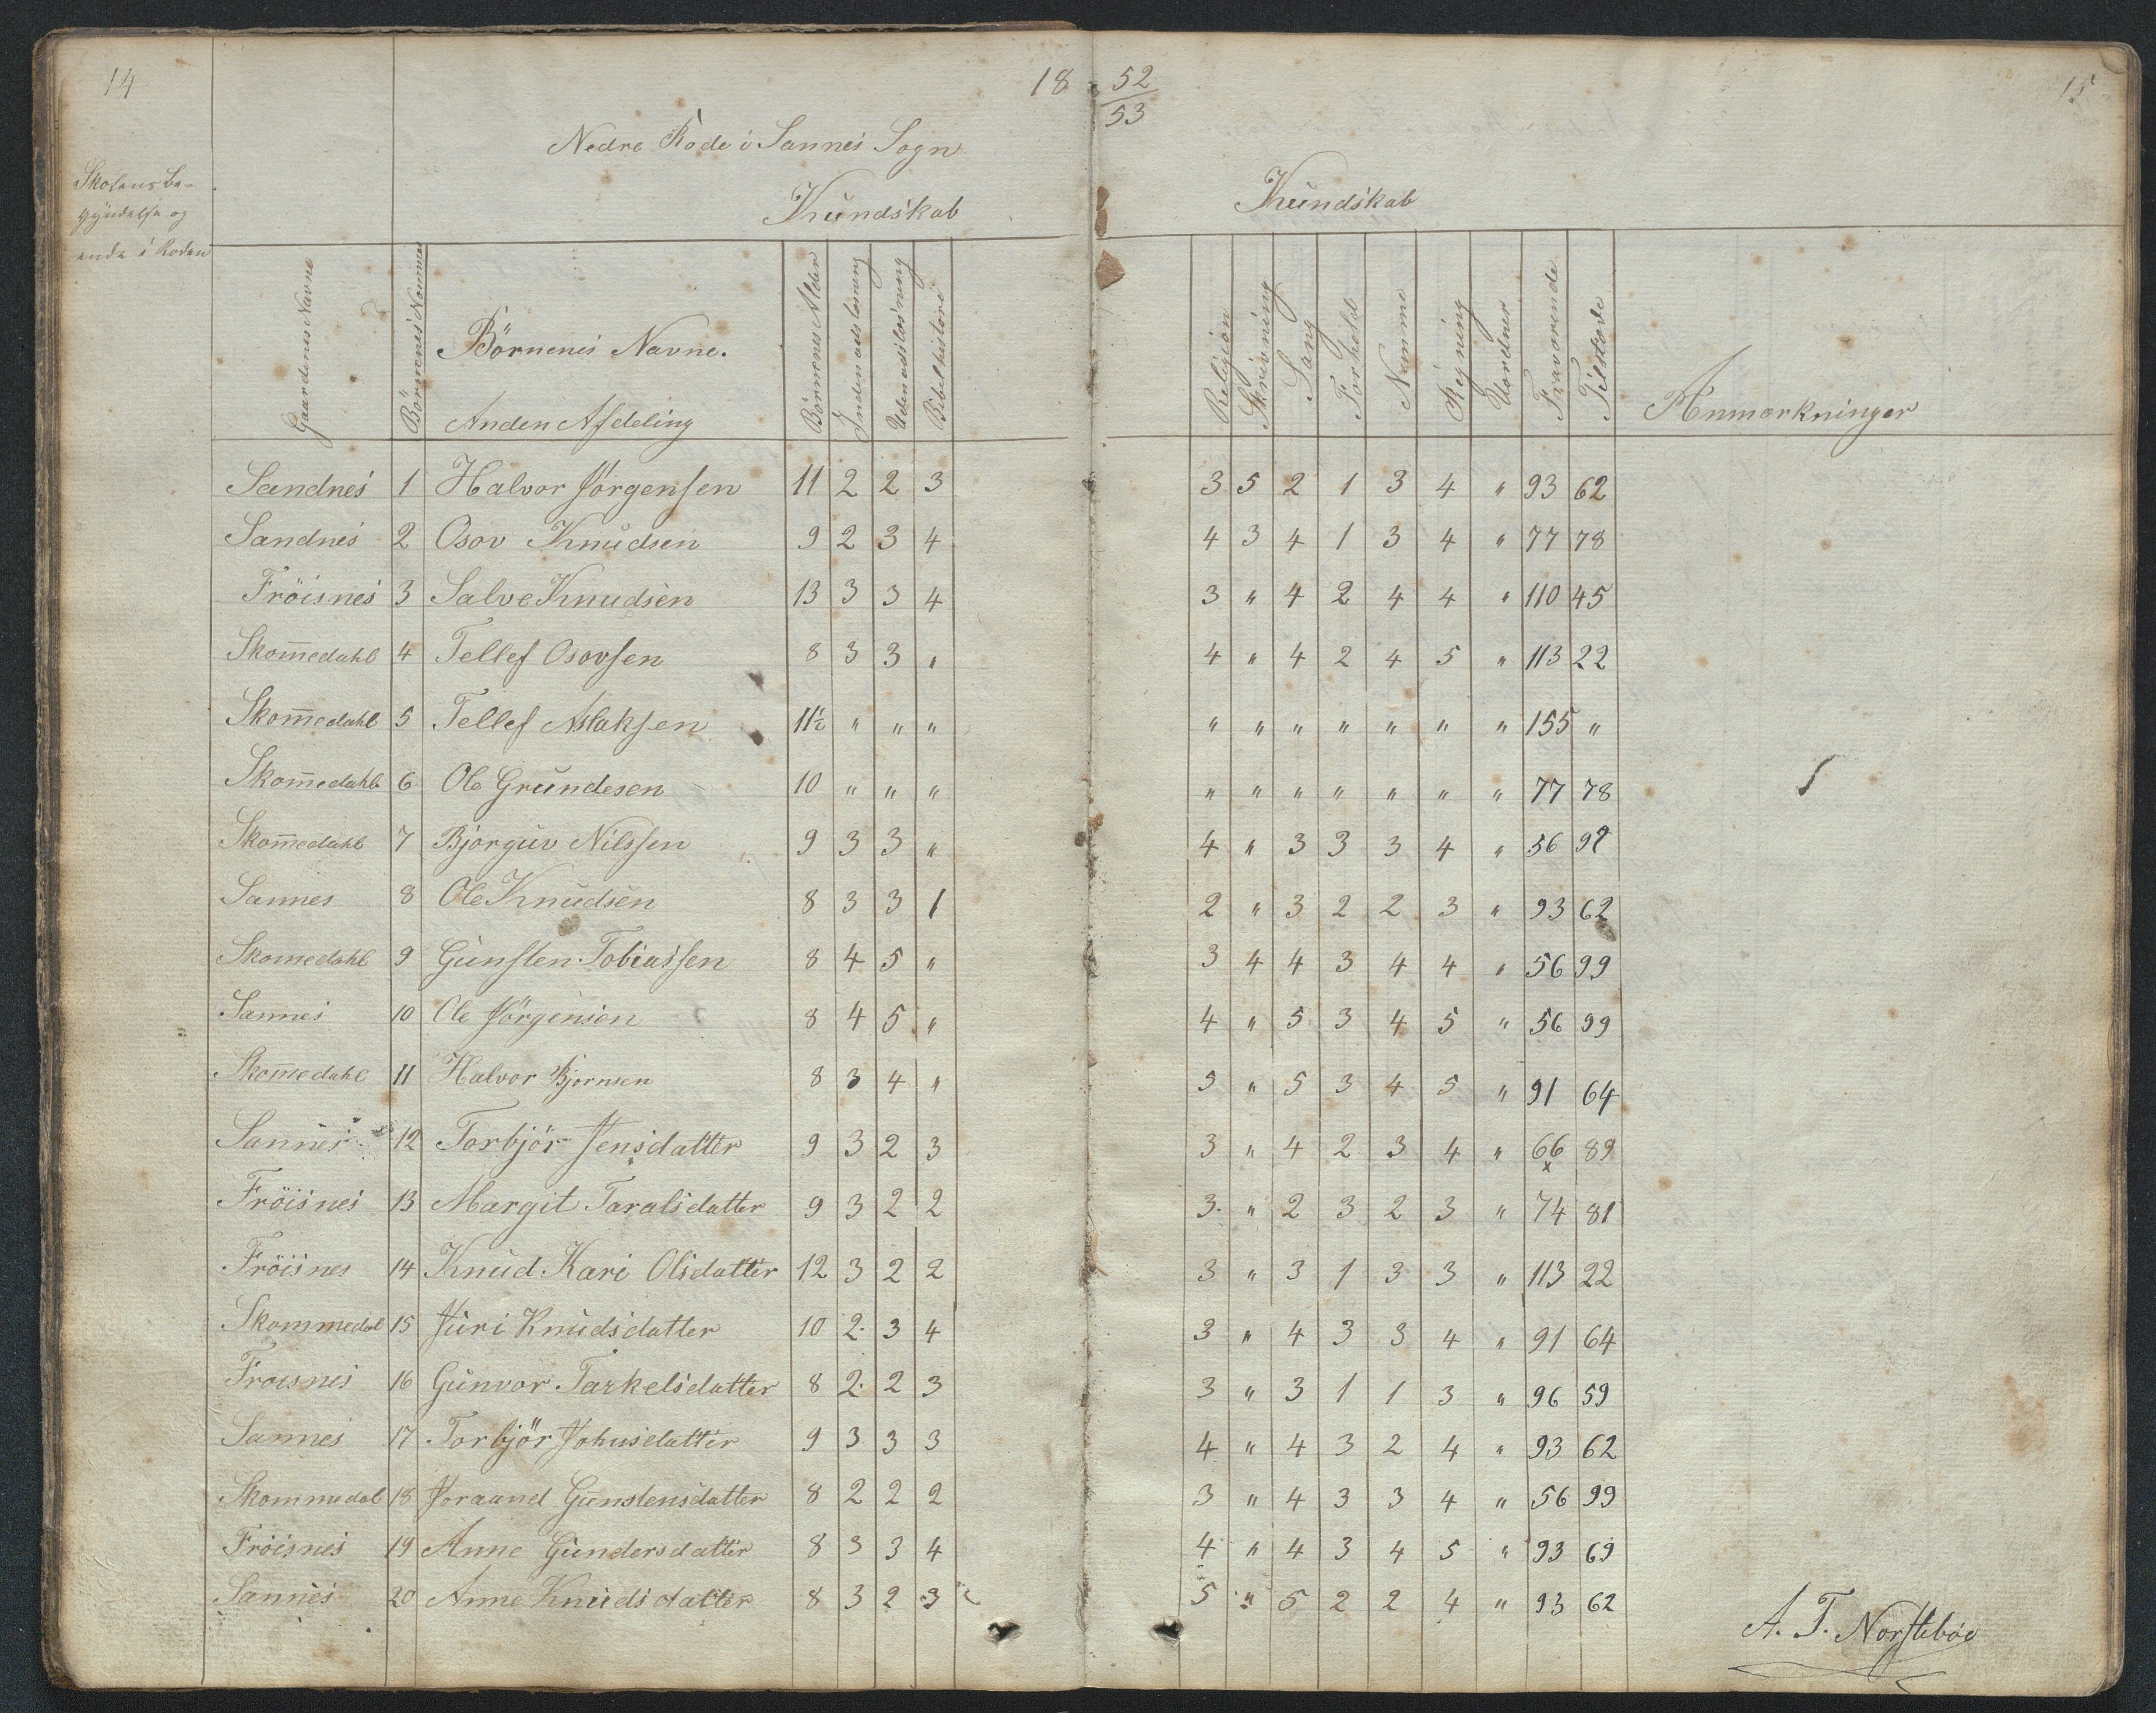 14
18 52/53
15
Nedre Rode i Sannes Sogn
Skolens Be-
gyndelse og
ende i Roden
Kundskab
Kundskab
Gaardenes Navne | Börnenes Nummer | Börnenes Navne. Anden Afdeling | Börnenes Alder | Indenadslæsning | Udenadslæsning | Bibelhistorie | Religion | Skrivning | Sang | Forhold | Nemme | Regning | Uordner | Fraværende | Tilstæde | Anmærkninger
Sandnes 1 Halvor Jörgensen 11 2 2 3 3 5 2 1 3 4 " 93 62
Sandnes 2 Osov Knudsen 9 2 3 4 4 3 4 1 3 4 " 77 78
Fröisnes 3 Salve Knudsen 13 3 3 4 3 " 4 2 4 4 " 110 45
Skom̅edahl 4 Tellef Osovsen 8 3 3 " 4 " 4 2 4 5 " 113 22
Skom̅edahl 5 Tellef Aslaksen 11½ " " " " " " " " " " 155 "
Skom̅edahl 6 Ole Grundesen 10 " " " " " " " " " " 77 78
Skom̅edahl 7 Bjorguv Nilssen 9 3 3 " 4 " 3 3 3 4 " 56 99
Sannes 8 Ole Knudsen 8 3 3 1 2 " 3 2 2 3 " 93 62
Skomedahl 9 Gunsten Tobiassen 8 4 5 " 3 4 4 3 4 4 " 56 99
Sannes 10 Ole Jörgensen 8 4 5 " 4 " 5 3 4 5 " 56 99
Skom̅edahl 11 Halvor Bjornsen 8 3 4 " 5 " 5 3 4 5 " 91 64
Sannes 12 Torbjör Jensdatter 9 3 2 3 3 " 4 2 3 4 " 66 89
x
Fröisnes 13 Margit Taralsdatter 9 3 2 2 3. " 2 3 2 3 " 74 81
Fröisnes 14 Knud. Kari Olsdatter 12 3 2 2 3 " 3 1 3 3 " 113 22
Skommedal 15 Juri Knudsdatter 10 2. 3 4 3 " 4 3 3 4 " 91 64
Froisnes 16 Gunvor Tarkelsdatter 8 2. 2 3 3 " 3 1 1 3 " 96 59
Sannes 17 Torbjör Johnsdatter 9 3 3 3 4 " 4 3 2 4 " 93 62
Skommedal 18 Joraand Gunstensdatter 8 2 2 2 3 " 4 3 3 4 " 56 99
Fröisnes 19 Anne Gundersdatter 8 3 3 4 4 " 4 3 4 5 " 93 69
Sannes 20 Anne Knudsdatter 8 3 2 3 5 " 5 2 2 4 " 93 62
A. T. Norstebøe